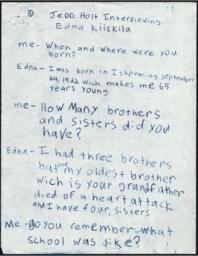 ① Jedd Holt Interviewing
Edna Kiiskila
me- When and Where were you
born?
Edna- I was born in Ishpeming September
1922 wich makes me 65
years young.
me- How Many brothers
and sisters did you
have?
Edna- I had three brothers
but my oldest brother
wich is your grandfather
died of a heart attack
and I have four, sisters
Me- Do you remember what
school was like?